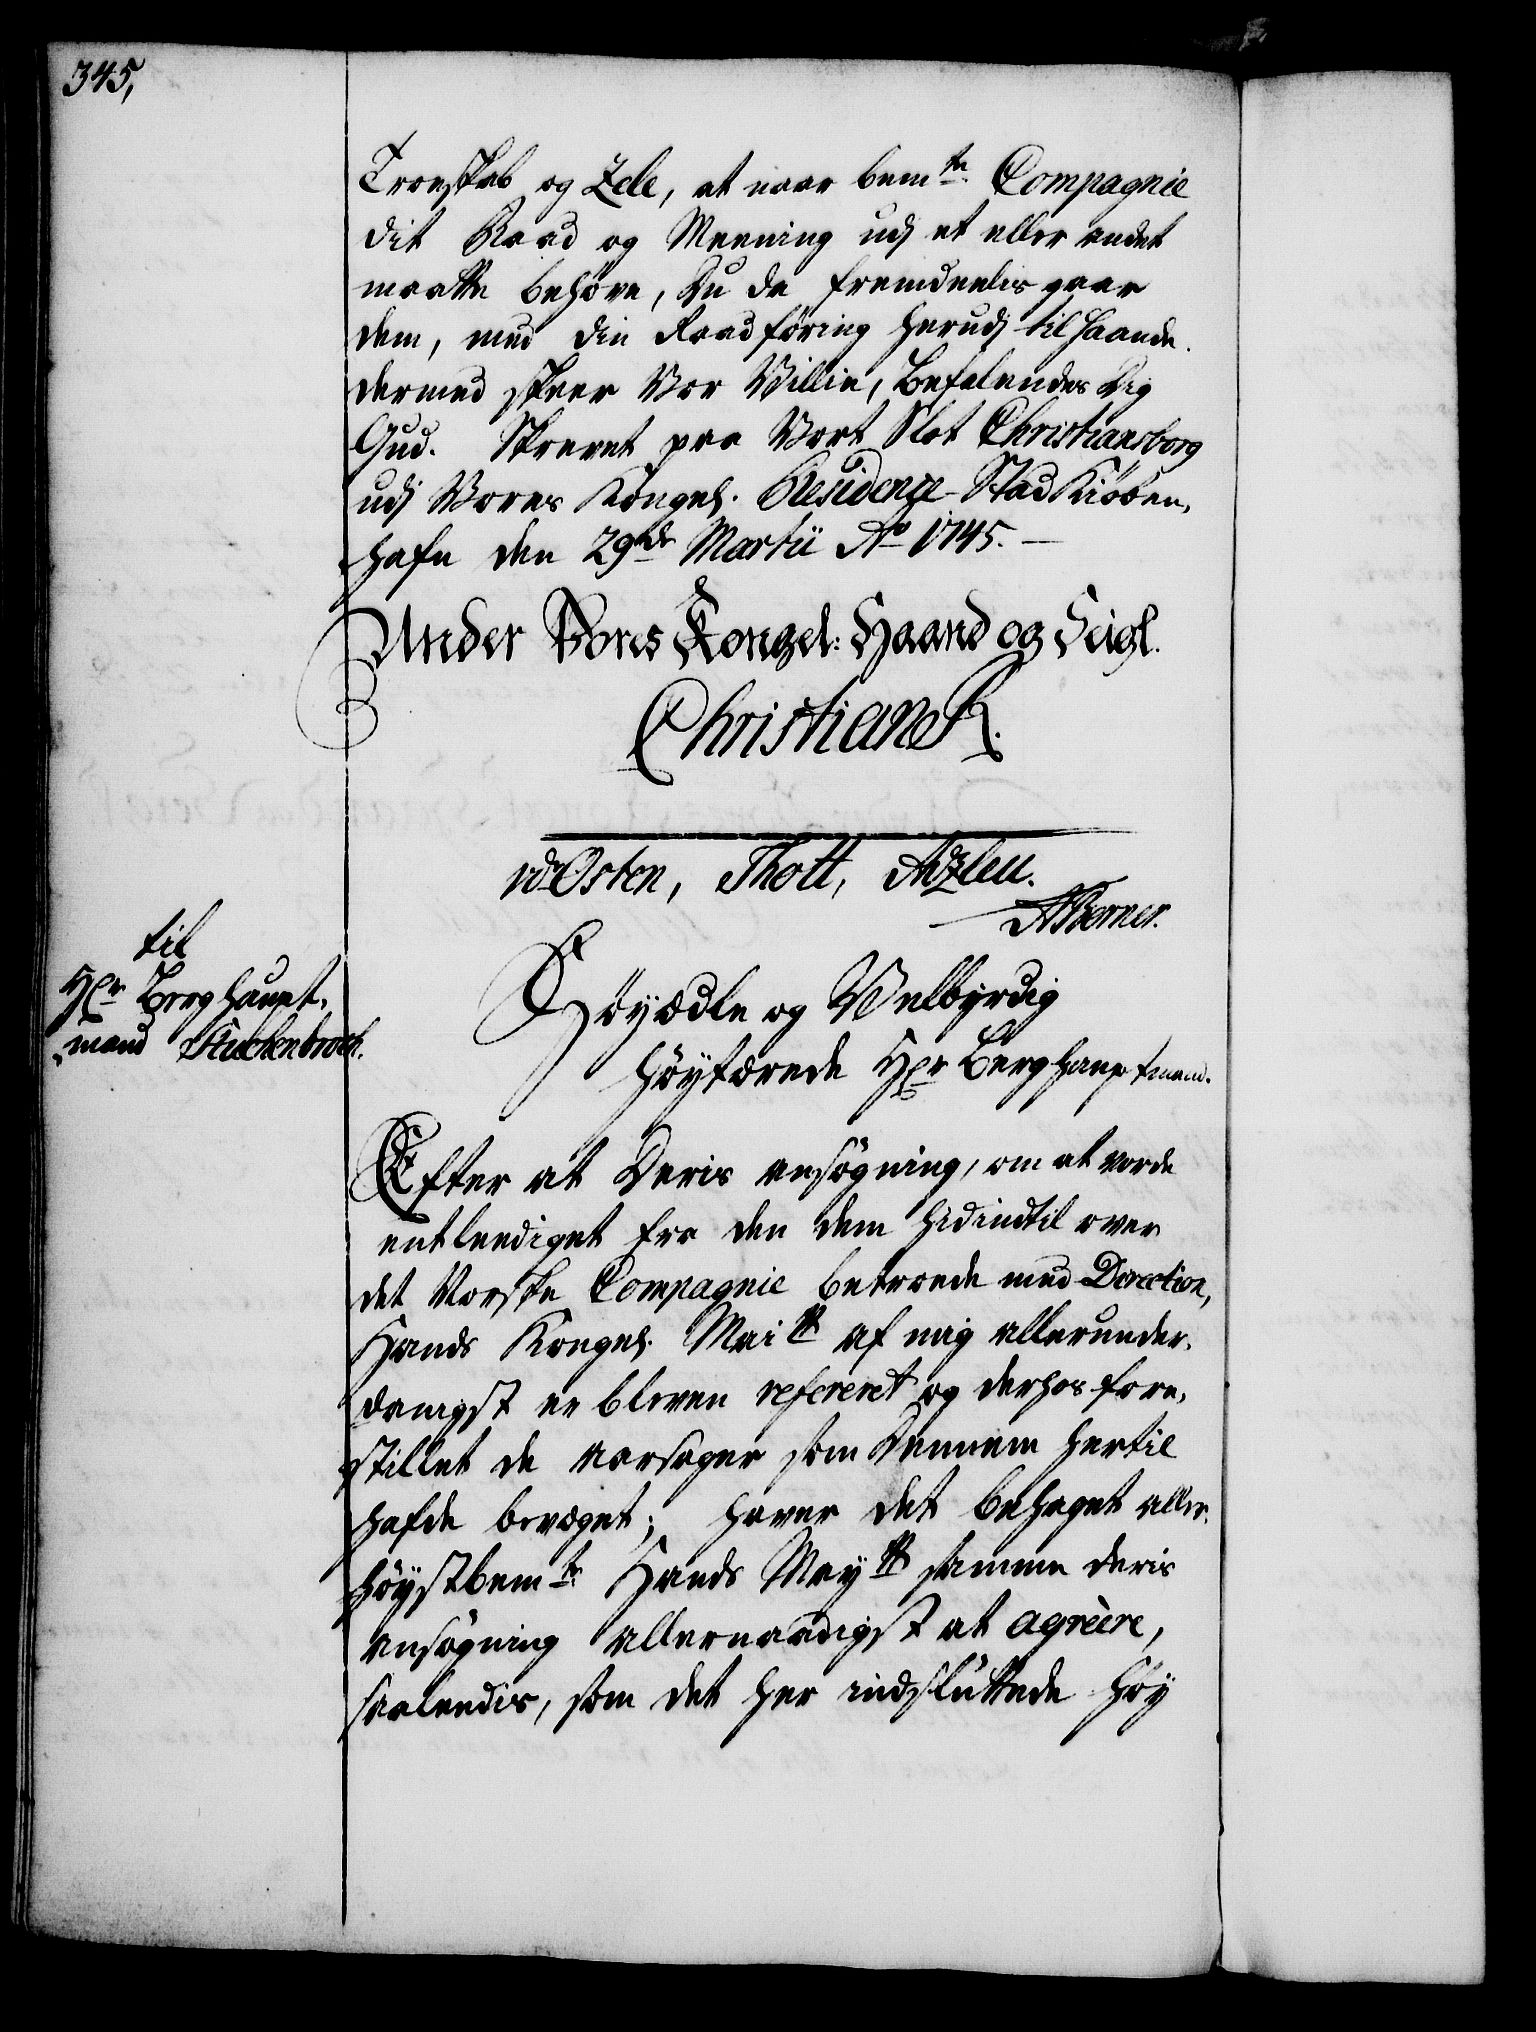 345,
Troeskab og Zele, at naar bemte Compagnie
dit Raad og Meening udj et eller andet
maatte behöve, Du da fremdeelis gaar
dem, med din Raadföring herudj til haande.
dermed skeer Vor Villie, Befalendes Dig
Gud. Skrevet paa Vort Slot Christiansborg
udj Vores Kongel. Residenze-Stad Kiöben,
hafn den 29de Martii Ao 1745. —
Under Vores Kongel: Haand og Seigl.
Christian R.
vdOsten, Thott,
ABerner.
til
Hr Berghaupt,
mand Stuckenbrock.
Höyædle og Velbyrdig
Höytærede Hr Berghauptmand.
Efter at Deris ansögning, om at vorde
entleediget fra den dem hidindtil over
det Norske Compagnie betroede med Direction,
Hands Kongel. Maitt af mig allerunder,
danigst er bleven refereret og derhos fore,
stillet de aarsager som Dennem hertil
hafde bevæget; haver det behaget aller,
höystbemte Hands Maytt samme deris
ansögning allernaadigst at agrèere,
saaleedis, som det her indsluttede Höy